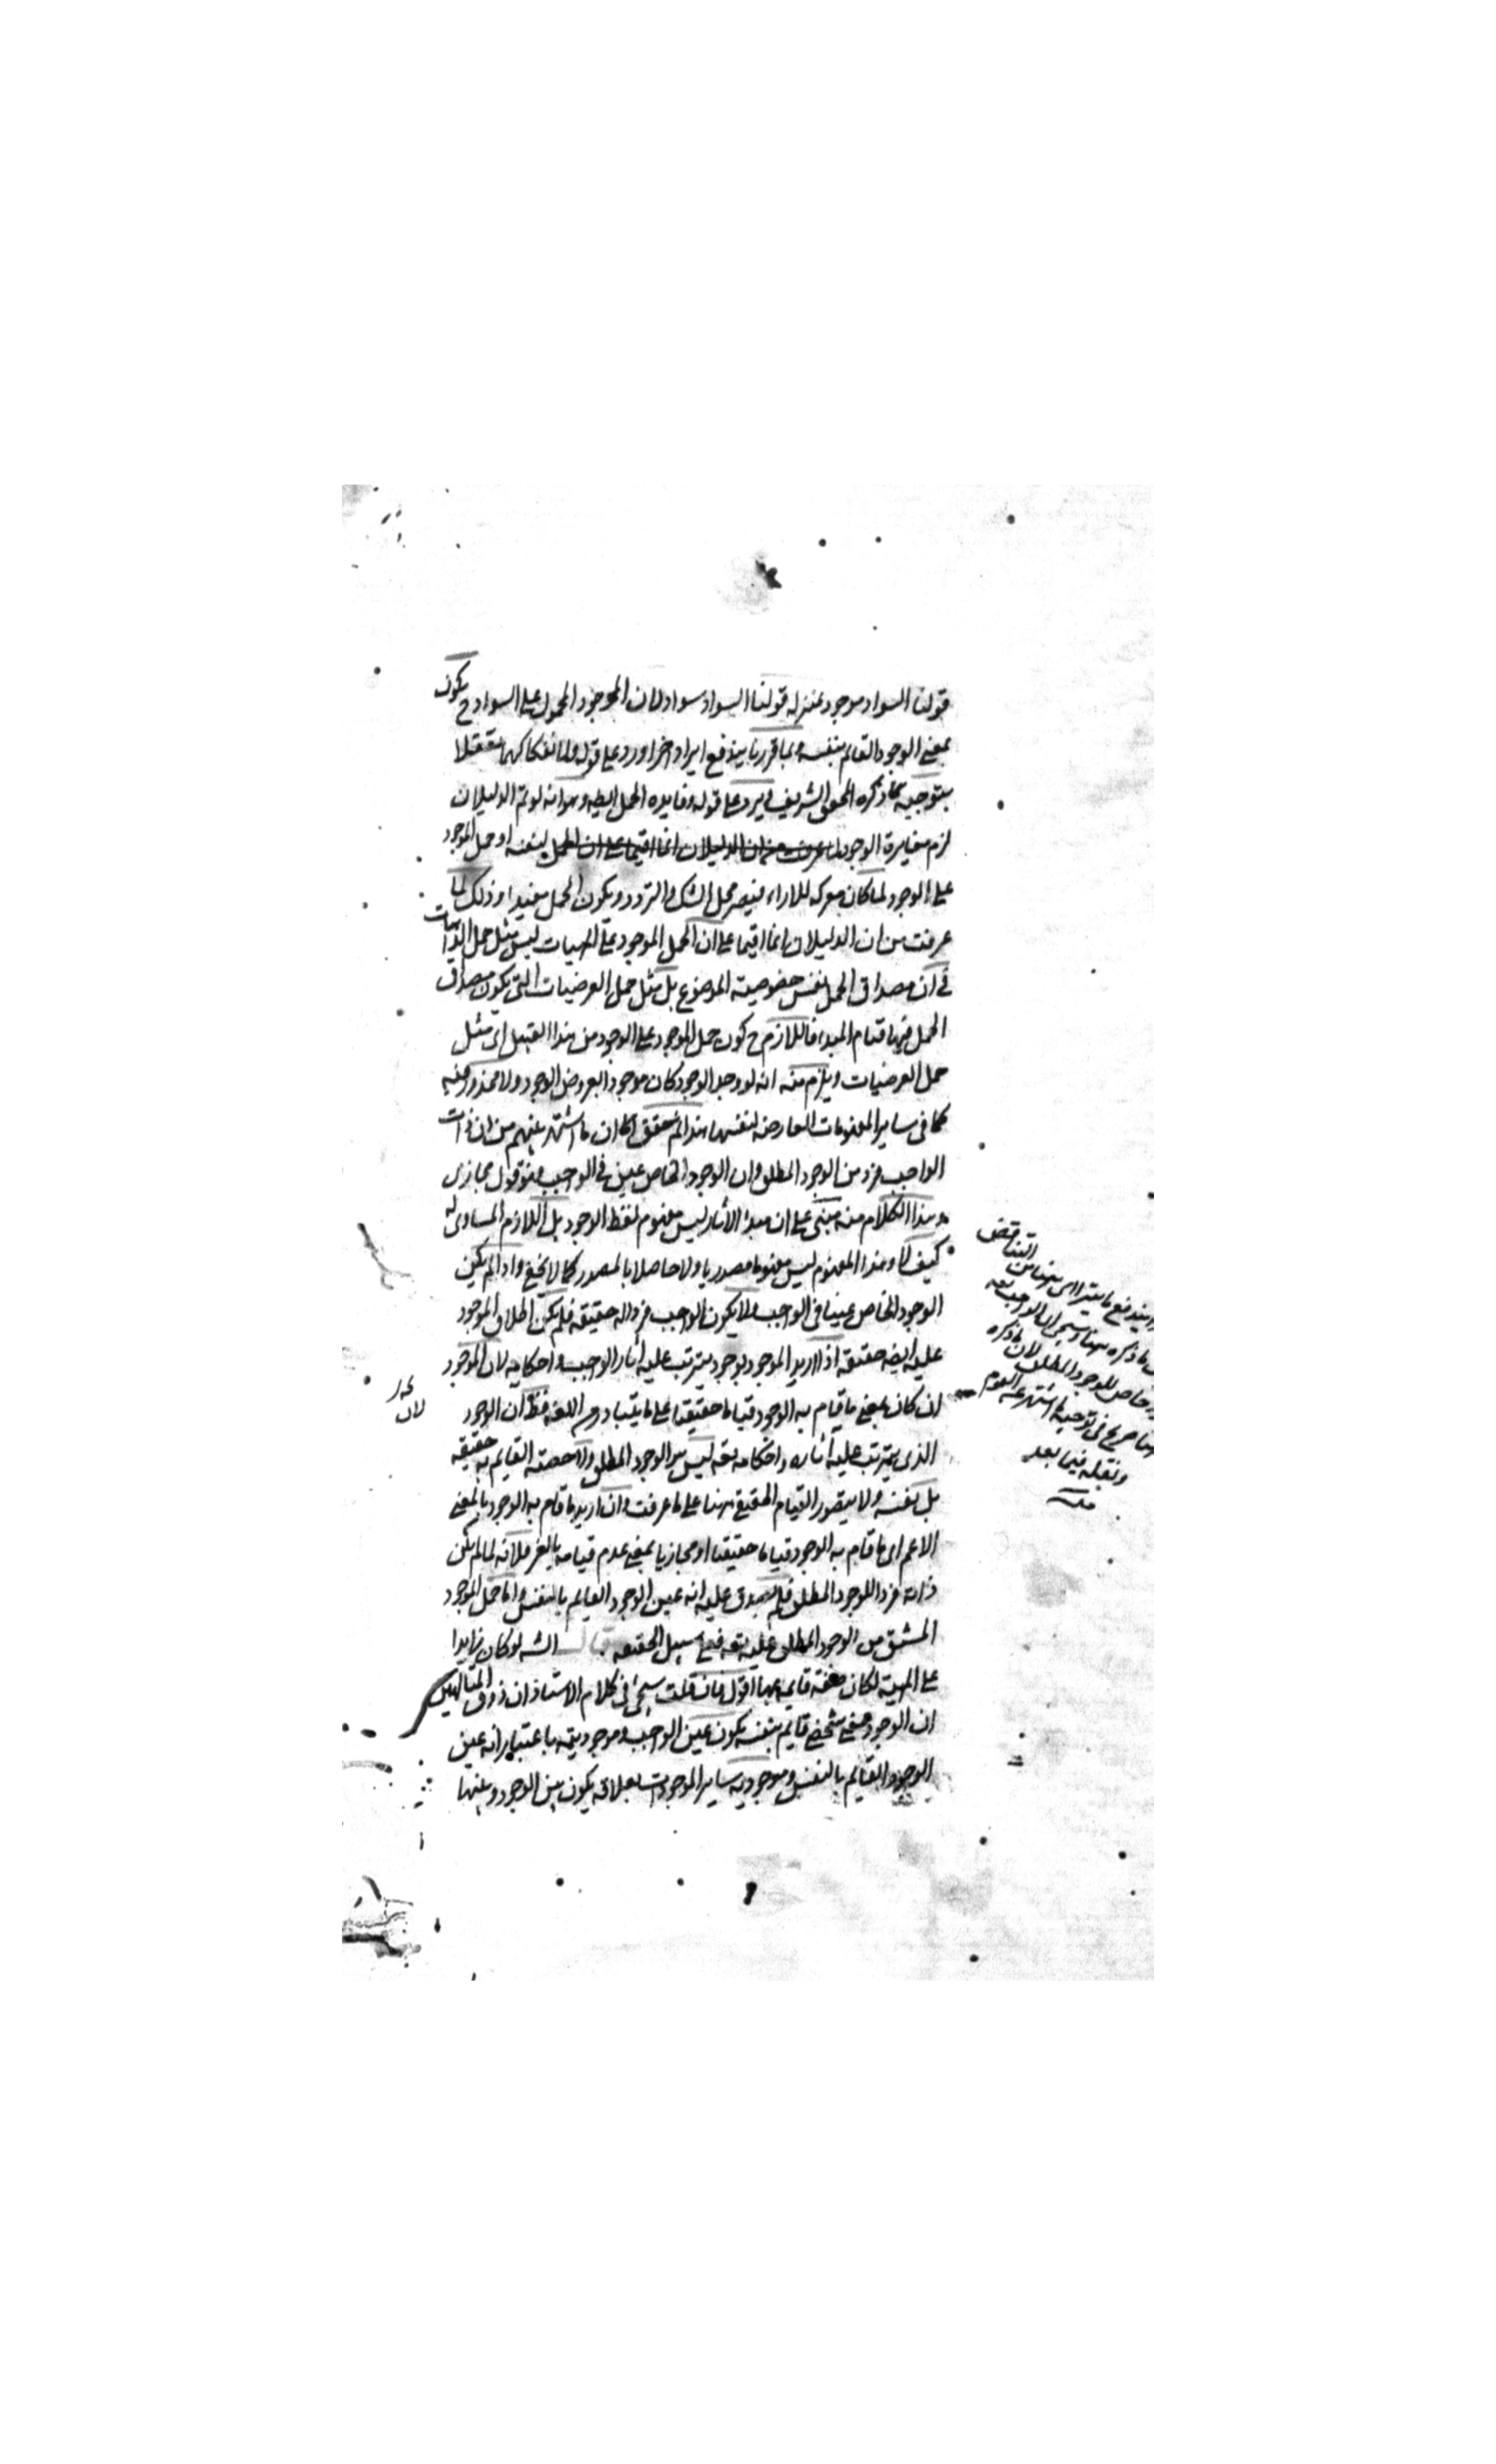 قولنا السواد موجود بمنزله قولنا السواد سواد لان الموجود المحمول على السواد ح يكون
بمعنى الوجود القائم بنفسه وبما قررنا يندفع ايراد اخر اورد على قوله ولانفكاكهما تعقلا
بتوجيه ذكره المحقق الشريف يرد على قوله وفايده الحمل ايضا وهو انه لو تم الدليلان
لزم مغايرة الوجود لنفسه او حمل الموجود
على الوجود لما كان معركه للاراء فيصير محل الشك والتردد ويكون الحمل مفيدا وذلك لما
عرفت من ان الدليلان انما اقيما على ان الحمل الموجود على المهيات ليس مثل حمل الذاتيات
في ان مصداق الحمل نفس خصوصية الموضوع بل مثل حمل العرضيات التي يكون مصداق
الحمل فيها قيام المبدء فاللازم ح كون حمل الموجود على الوجود من هذا القبيل اى مثل
حمل العرضيات ويلزم منه انه لو وجد الوجود كان موجودا بعروض الوجود ولا محذور فيه
كما في ساير المفهومات العارضه لنفسها هذا ثم تحقق ان ما اشتهر عنهم من ان ذات
الواجب فرد من الوجود المطلق وان الوجود الخاص عين في الواجب فهو قول مجازى
وهذا الكلام منه مبنى على ان مبدء الآثار ليس مفهوم لفظ الوجود بل اللازم المساوى له
كيف لا وهذا المفهوم ليس مفهوما مصدريا ولا حاصلا بالمصدر كما لا يخفى واذا لم يكن
الوجود الخاص عينا في الواجب ولا يكون الواجب فردا له حقيقه فلم يكن اطلاق الموجود
عليه ايضا حقيقه اذا اريد الموجود بوجود يترتب عليه آثار الواجب واحكامه لان الموجود
ان كان بمعنى ما قام به الوجود قياما حقيقيا على ما يتبادر اللغه فظ ان الوجود
الذى يترتب عليه آثاره واحكامه تعه ليس هو الوجود المطلق ولا حصته القايم به حقيقه
بل نفسه ولا يتصور القيام الحقيقى ههنا على ما عرفت وان اريد ما قام به الوجود بالمعنى
الاعم اى ما قام به الوجود قياما حقيقيا او مجازيا بمعنى عدم قيامه بالغير فلانه لما لم يكن
ذاته فردا للوجود المطلق فلم يصدق عليه انه عين الوجود القايم بالنفس واما حمل الموجود
المشتق من الوجود المطلق عليه تعه فعلى سبيل الحقيقه . قال الشه لو كان زايدا
على المهية لكان صفة قايمه بها اقول فان قلت سيجئ في كلام الاستاذ ان ذوق المتالهين
ان الوجود معنى شخصى قايم بنفسه يكون عين الواجب وموجوديته باعتبار انه عين
الوجود القايم بالنفس وموجوديه ساير الموجودات بعلاقه يكون بين الوجود وبينها
التناقض
يندفع ما يترااى ههنا من
ما ذكره ههنا وسيجئ ان الواجب تعه
خاص للوجود المطلق لان ما ذكره
في توجيه ما اشتهر عنه القوم
ونقله فيما بعد
منه